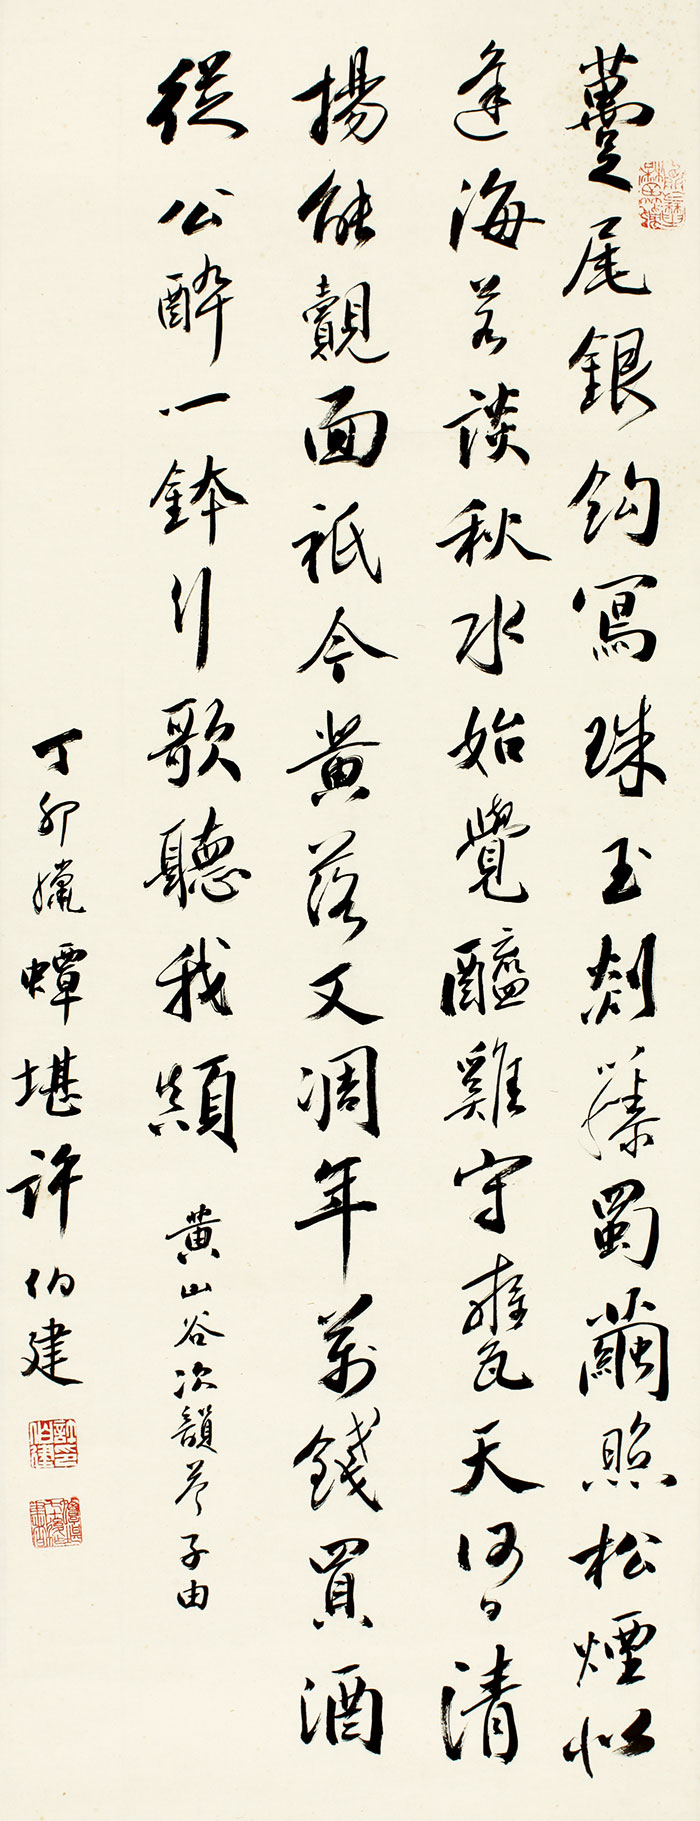 蠆尾銀鈎寫珠玉剡藤蜀繭照松煙似
逢海若談秋水始覺醯雞守甕天何日清
揚能覿面祇今黃落又凋年萬錢買酒
從公醉一鉢行歌聽我顛
黃山谷次韻答子由
丁卯臘蟫堪許伯建